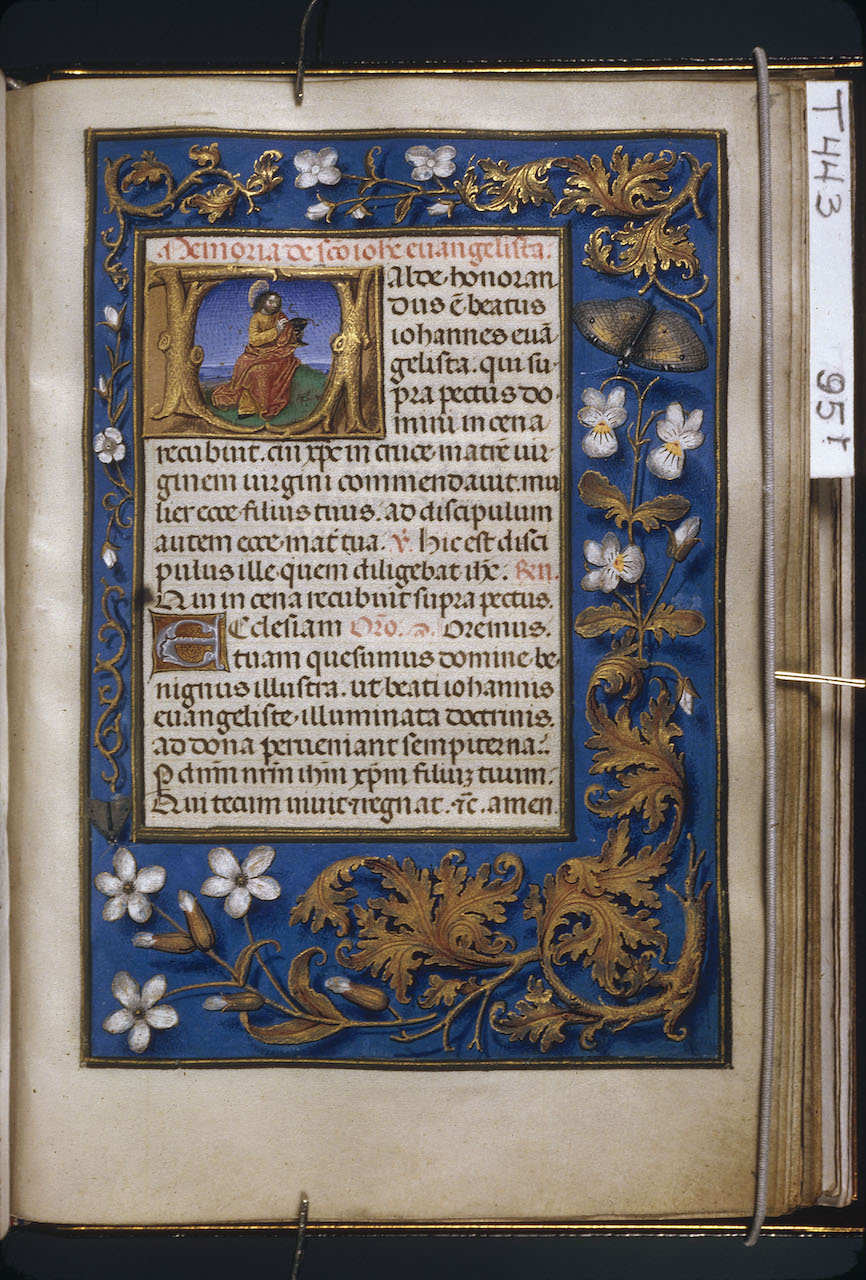 Memoria de scō iohē euangelista.
Valde honoran
dus ē beatus
iohannes euā
gelista. qui su
pra pectus do
mini in cena
recubuit. cui xp̄c in cruce matrē uir
ginem uirgini commendauit. mu
lier ecce filius tuus. ad discipulum
autem ecce mat̄ tua. ℣. Hic est disci
pulus ille quem diligebat ih̄c. Ren.
Qui in cena recubuit supra pectus.
Ecclesiam Orō. ⁊. Oremus.
tuam quesumus domine be
nignus illustra. ut beati iohannis
euangeliste illuminata doctrinis.
ad dona perueniant sempiterna.
P dn̄m nr̄m ihm̄ xp̄m filiuꝫ tuum.
Qui tecum uiuit ⁊ regnat. ⁊c̄. amen
T 443
95r